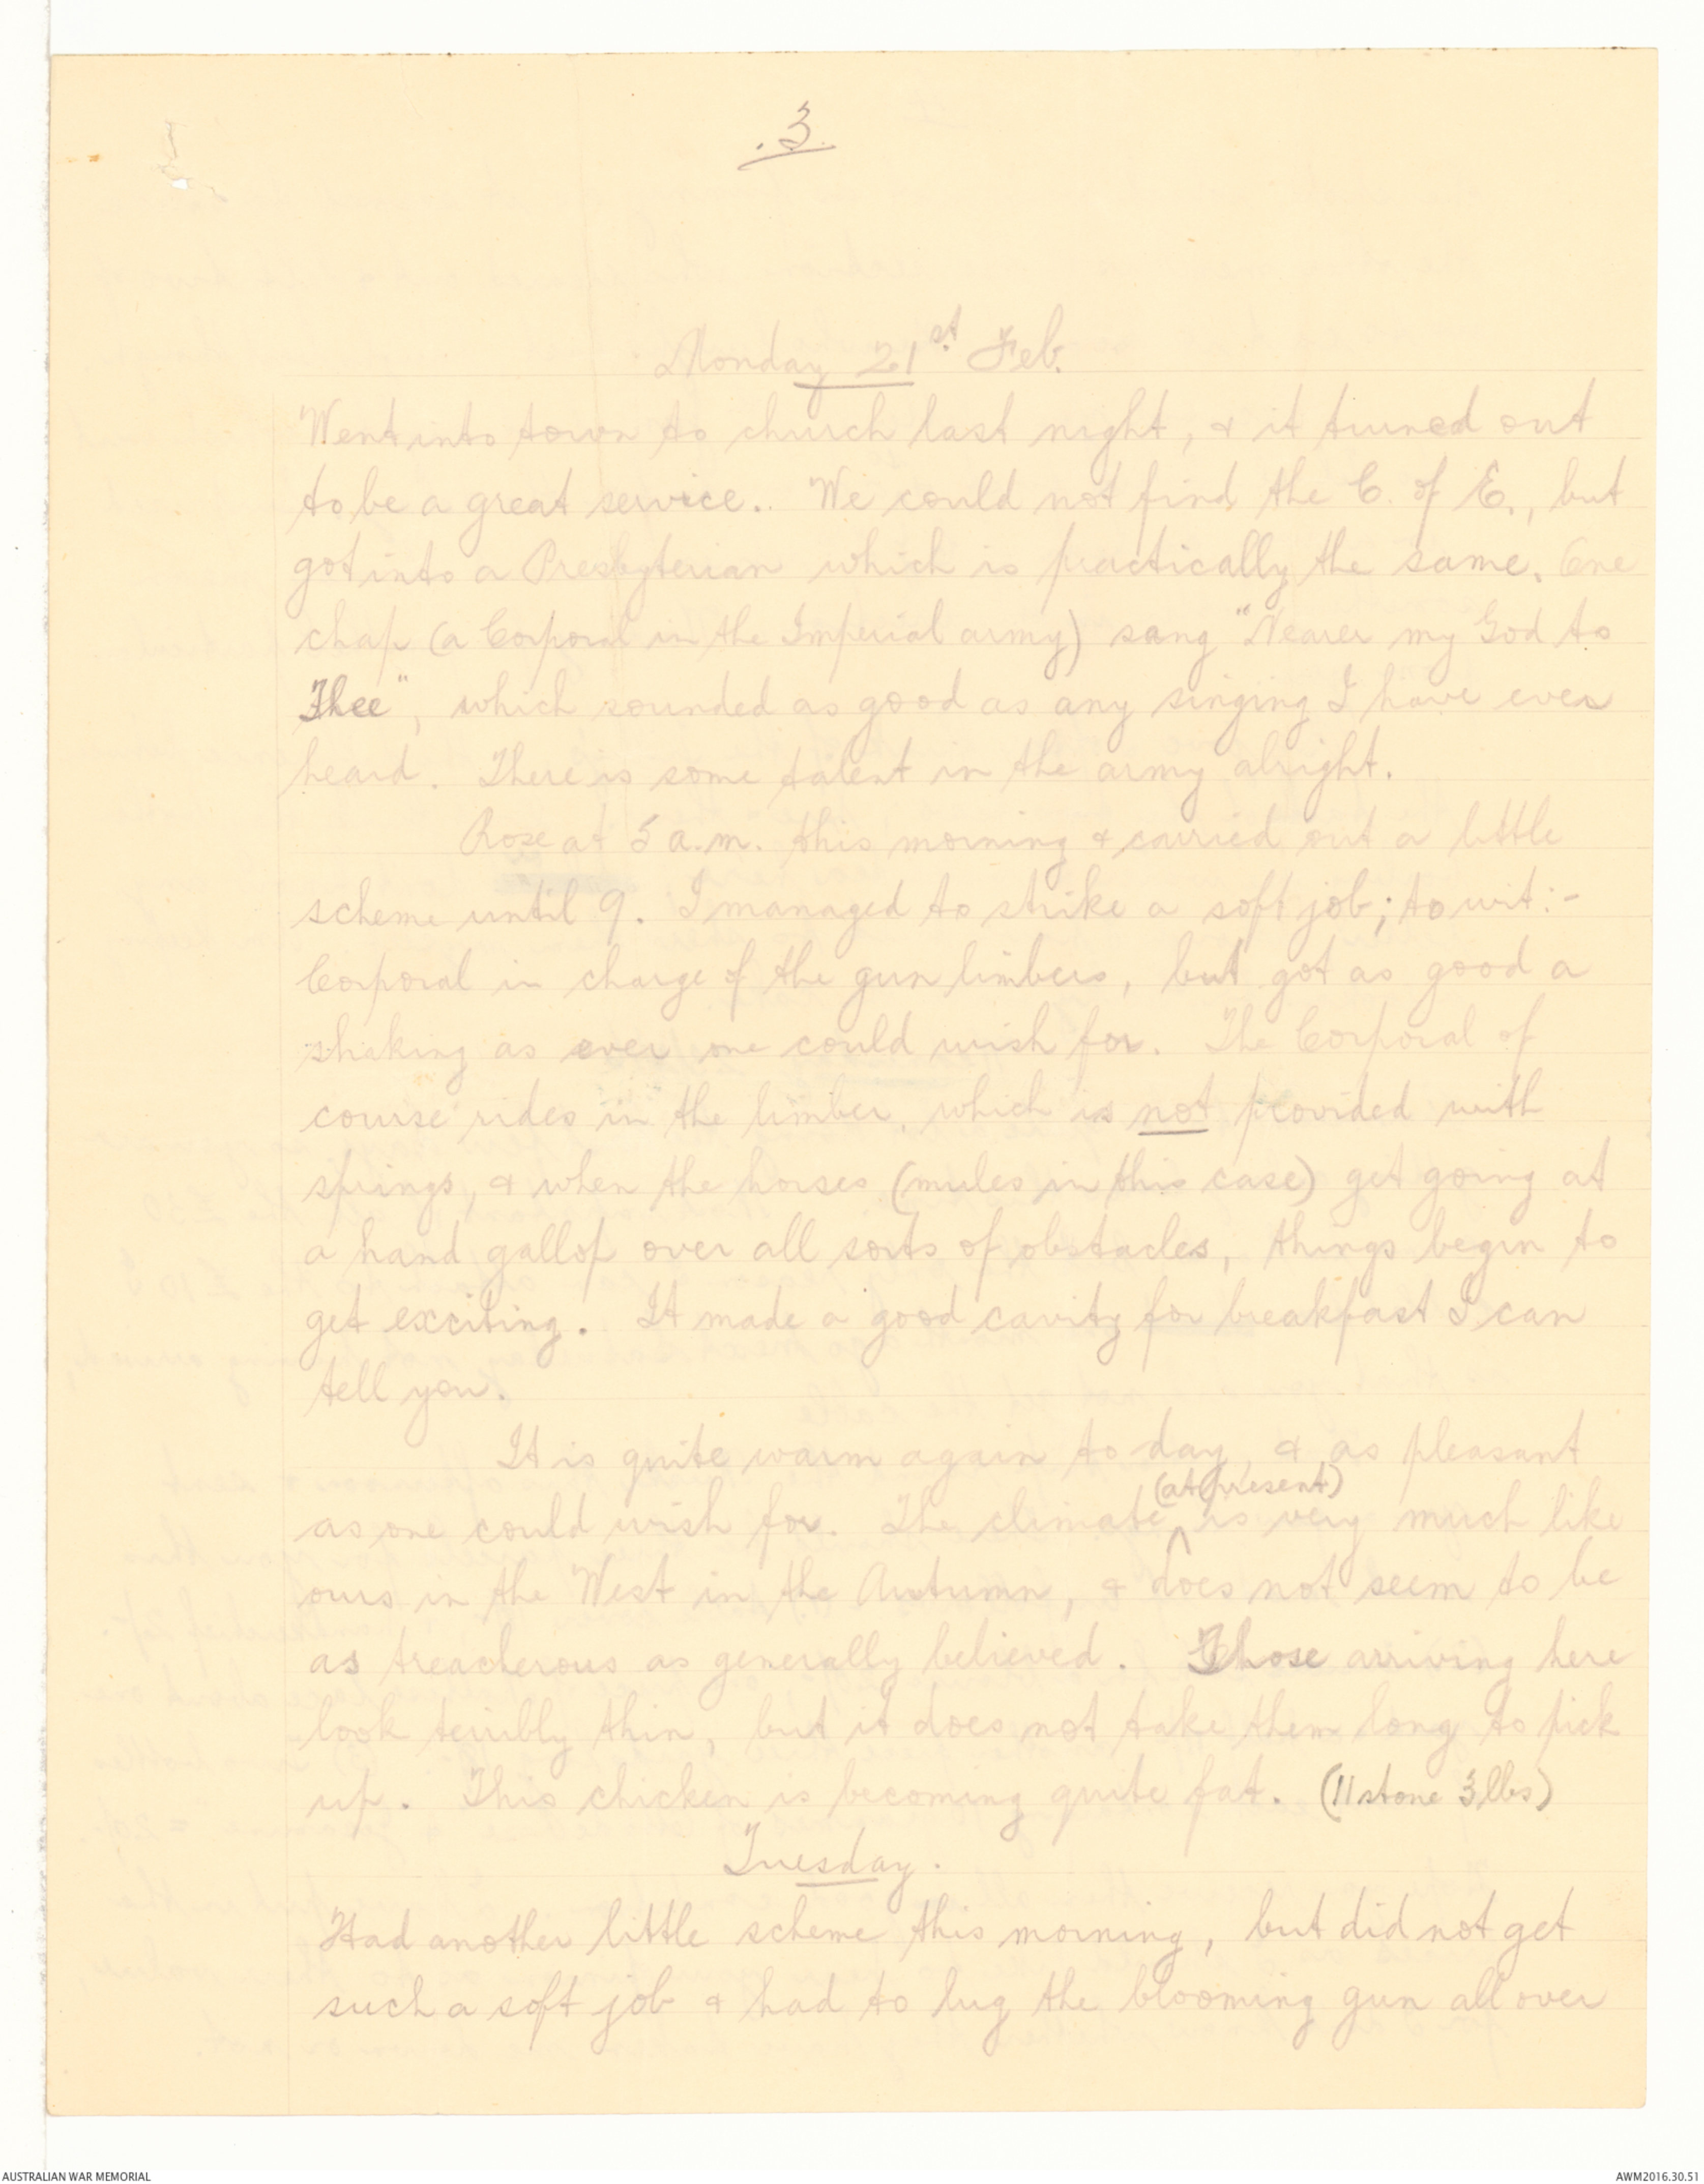 .3.
Monday 21st Feb.
Went into town to church last night, & it turned out
to be a great service.. We could not find the C. of E., but
got into a Presbyterian which is practically the same. One
chap (a Corporal in the Imperial army) sang "Nearer my God to
Thee", which sounded as good as any singing I have ever
heard. There is some talent in the army alright.
Rose at 5 a.m. this morning & carried out a little
scheme until 9. I managed to strike a soft job; to wit:-
Corporal in charge of the gun limbers, but got as good a
shaking as ever one could wish for. The Corporal of
course rides "in" the limber, which is not provided with
springs, & when the horses (mules in this case) get going at
a hand gallop over all sorts of obstacles, things begin to
get exciting. It made a good cavity for breakfast I can
tell you.
It is quite warm again to day, & as pleasant
(at present)
as one could wish for. The climate ^ is very much like
ours in the West in the Autumn, & does not seem to be
as treacherous as generally believed. Those arriving here
look terribly thin, but it does not take them long to pick
up. This chicken is becoming quite fat. (11 stone 3 lbs)
Tuesday.
Had another little scheme this morning, but did not get
such a soft job & had to lug the blooming gun all over
AUSTRALIAN WAR MEMORIAL
AWM2016.30.51